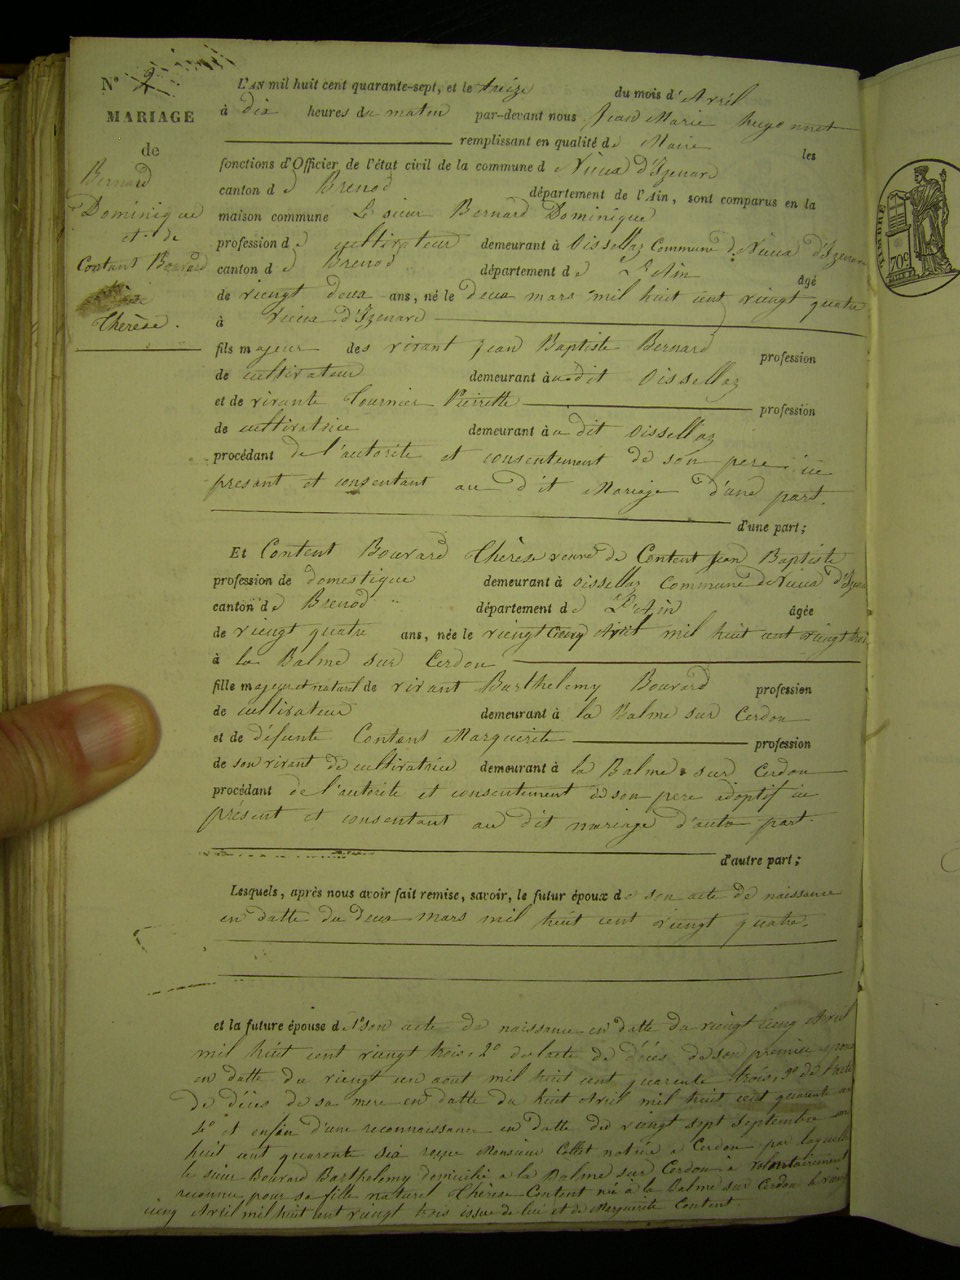 N° 2
MARIAGE
de
Bernard
Dominique
et de
Contant Bouvard
Thérèse.
L'AN mil huit cent quarante-sept, et le treize du mois d'Avril
à dix heures du matin par-devant nous Jean Marie hugonnet
remplissant en qualité de Maire les
fonctions d'Officier de l'état civil de la commune d Vieux d'Izenave
canton d e Brenod département de l'Ain, sont comparus en la
maison commune Le sieur Bernard Dominique
profession d e cultivateur demeurant à Oissellaz Commune de Vieux d'Izenave
canton d e Brenod département d e L'Ain âgé
de viengt deux ans, né le deux mars mil huit cent viengt quatre
à Vieux d'Izenave
fils majeur des vivant Jean Baptiste Bernard profession
de cultivateur demeurant à u dit Oissellaz
et de vivante Tournier Pierrette profession
de cultivatrice demeurant à u dit Oissellaz
procédant de l'autorité et consentement de son pere ici
present et consentant au dit Mariage d'une part.
d'une part;
Et Content Bouvard Thérèse veuve de Content Jean Baptiste
profession de domestique demeurant à Oissellaz Commune de Vieux d'Izen
canton d e Brenod département d e L'Ain âgée
de viengt quatre ans, née le viengt Cinq Avril mil huit cent viengt trois
à la Balme sur Cerdon
fille majeur et naturel de vivant Barthelemy Bouvard profession
de cultivateur demeurant à la Balme sur Cerdon
et de défunte Content Marguerite profession
de son vivant de cultivatrice demeurant à la Balme sur Cerdon
procédant de l'autorité et consentement de son pere adoptif ici
présent et consentant au dit mariage d'autre part.
d'autre part;
Lesquels, après nous avoir fait remise, savoir, le futur époux de son acte de naissance
en datte du deux mars mil huit cent viengt quatre.
et la future épouse d 1° son acte de naissance en datte du viengt Cinq Avril
mil huit cent viengt trois, 2° de lacte de décés de son premier epoux
en datte du viengt un aout mil huit cent quarente trois, 3° de l'acte
de décés de sa mere en datte du huit Avril mil huit cent quarente
4° et enfin d'une reconnaissance en datte du viengt sept Septembre
huit cent quarente six reçue Monsieur notaire a Cerdon par laquelle
le sieur Bouvard Barthelemy domicilié a la Balme sur Cerdon a volontairement
reconnue pour sa fille naturel Thérèse Content née à la Balme sur Cerdon le vieng
cinq Avril mil huit cent viengt trois issue de lui et de Marguerite Content.
TIMBRE
70c